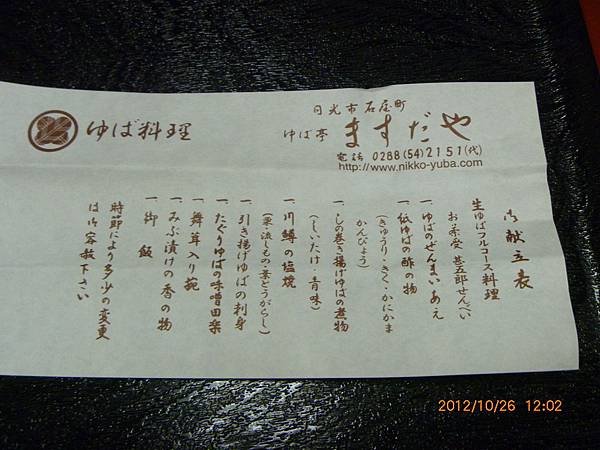 ゆば料理
日光市石屋町
ゆば亭 ますだや
電話 0288(54)2151(代)
http://www.nikko-yuba.com
御献立表
生ゆばフルコース料理
お茶受 甚五郎せんべい
一、ゆばのぜんまいあえ
一、紙ゆばの酢の物
(きゅうり・きく・かにかま
かんぴょう)
一、しの巻き揚げゆばの煮物
(しいたけ・青味)
一、川鱒の塩焼
一、引き揚げゆばの刺身
(栗・流しもの・葉とうがらし)
一、たぐりゆばの味噌田楽
一、舞茸入り椀
一、みぶ漬けの香の物
一、御 飯
時節により多少の変更
は御容赦下さい
2012/10/26 12:02